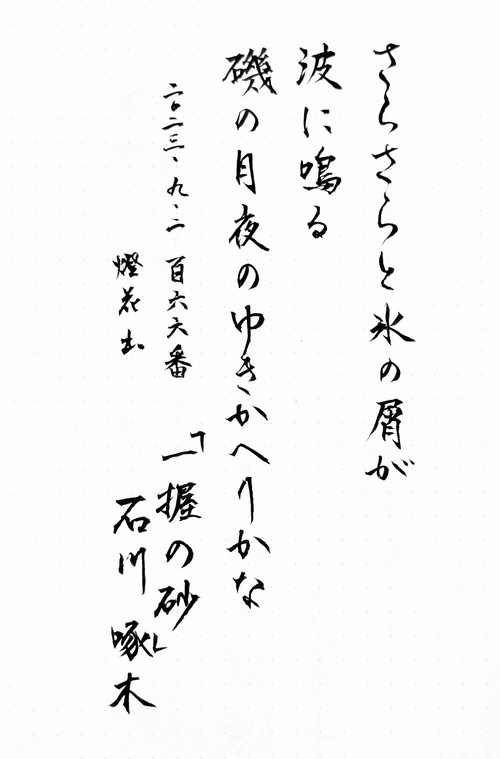 さらさらと氷の屑が
波に鳴る
磯の月夜のゆきかへりかな
二〇二三、九、二 百六六番
「一握の砂」
燈花
石川啄木